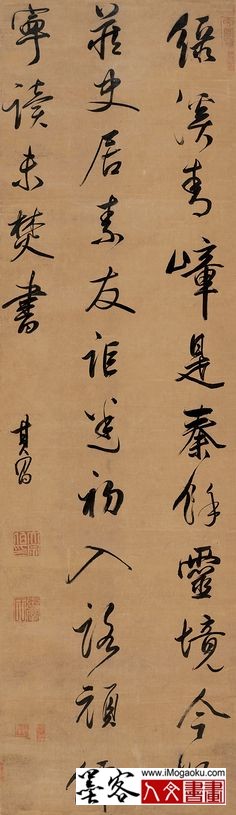 綠溪青嶂是秦餘靈境今
莊史居素友詎迷初入路頑
寧讀未焚書
其昌
墨客
www.iMogaoku.com
人文書畫